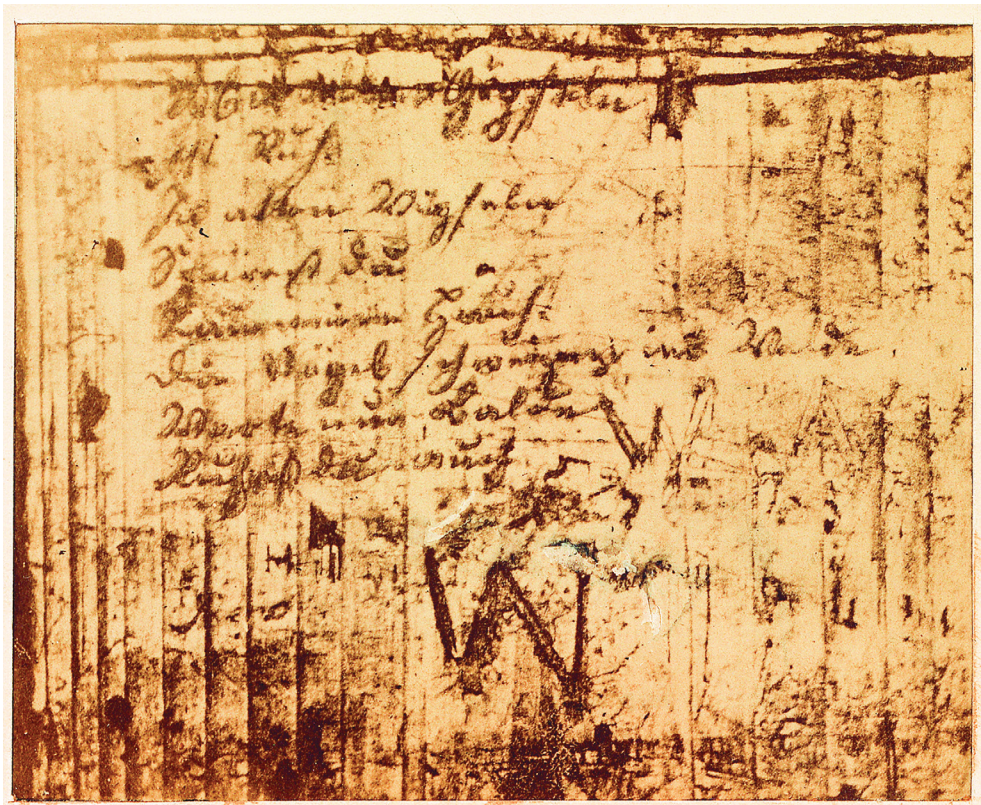 Ueber allen Gipfeln
ist Ruh
In allen Wipfeln
Spürest du
Kaum einen Hauch.
Die Vögel schweigen im Walde
Warte nur balde
Ruhest du auch